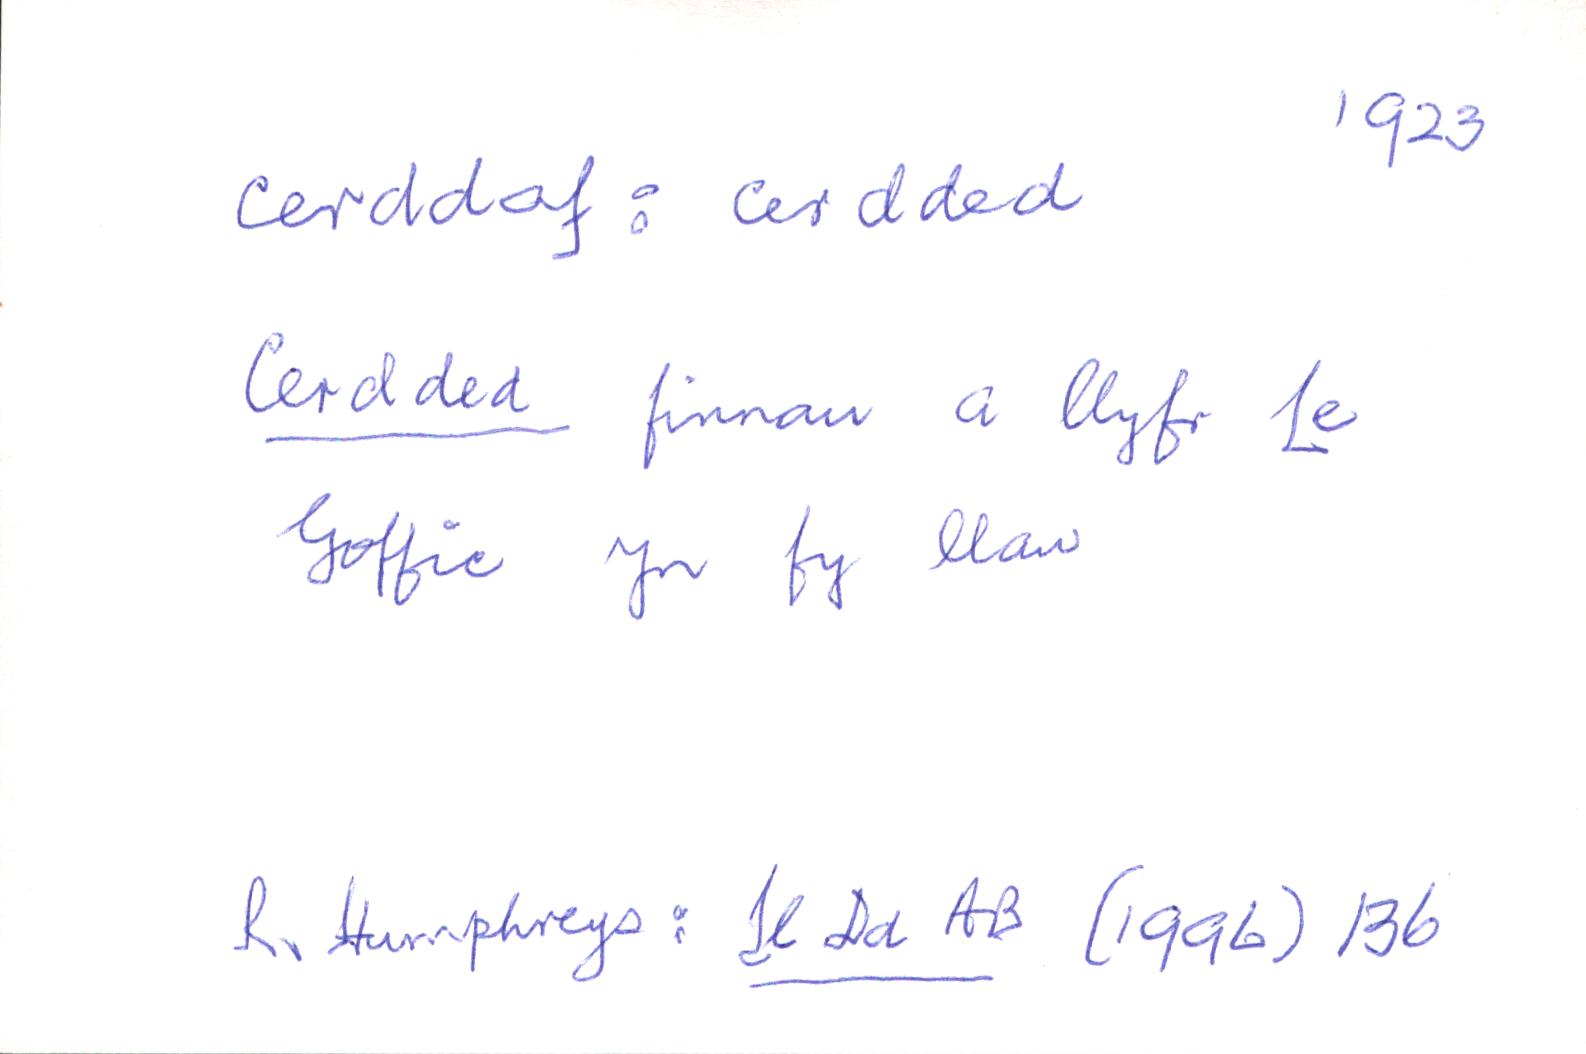 1923
cerddaf: cerdded
Cerdded finnau a llyfr Le
Goffic yn fy llaw
R. Humphreys: Ll Dd AB (1996) 136